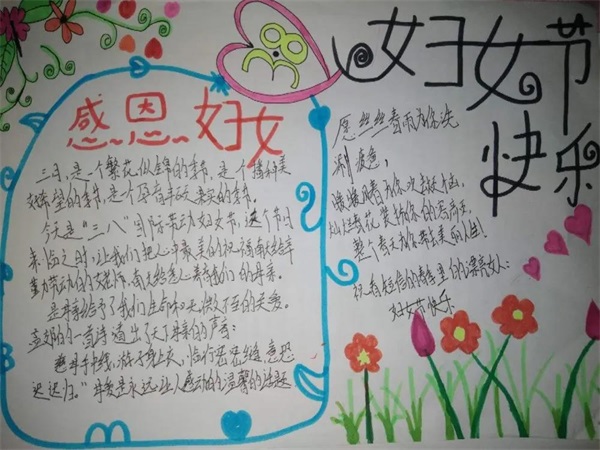 38
妇女节
快乐
感恩妇女
三月,是一个繁花似锦的季节,是个播种美
好希望的季节,是个孕育丰收果实的季节。
今天是“三八”国际劳动妇女节,这个节日
来临之时,让我们把心中最美的祝福献给辛
勤劳动的女老师,献给悉心养育我们的母亲。
是母亲给予了我们生命和无微不至的关爱。
孟郊的一首诗道出了天下母亲的声音:
慈母手中线,游子身上衣,临行密密缝,意恐
迟迟归。”母爱是永远让人感动的温馨的话题
愿丝丝春雨为你洗
刷疲惫,
暖暖
灿烂花
整个春天为你
祝看短信的
妇女节快乐